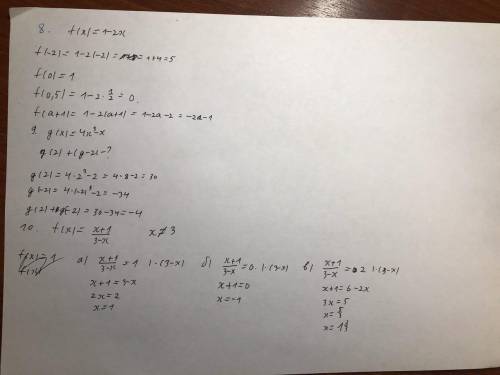 8. f(x)=1-2x
f(-2)=1-2(-2)=1+4=5
f(0)=1
f(0,5)=1-2·1/2=0.
f(a+1)=1-2(a+1)=1-2a-2=-2a-1
9. g(x)=4x³-x
g(2)+(g-2)-?
g(2)=4·2³-2=4·8-2=30
g(-2)=4·(-2)³-2=-34
g(2)+g(-2)=30-34=-4
10. f(x)=(x+1)/(3-x) x≠3
f(x)=1
f(x)
а) (x+1)/(3-x)=1 |·(3-x)
x+1=3-x
2x=2
x=1
б) (x+1)/(3-x)=0 |·(3-x)
x+1=0
x=-1
в) (x+1)/(3-x)=2 |·(3-x)
x+1=6-2x
3x=5
x=5/3
x=1 2/3